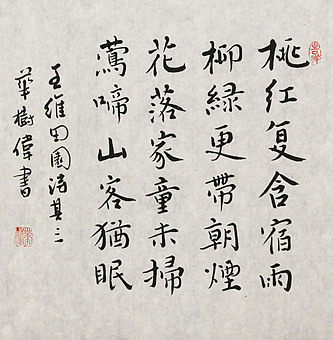 桃红复含宿雨
柳緑更帶朝煙
花落家童未掃
鶯啼山客猶眠
王維田園诗其三
華樹偉書